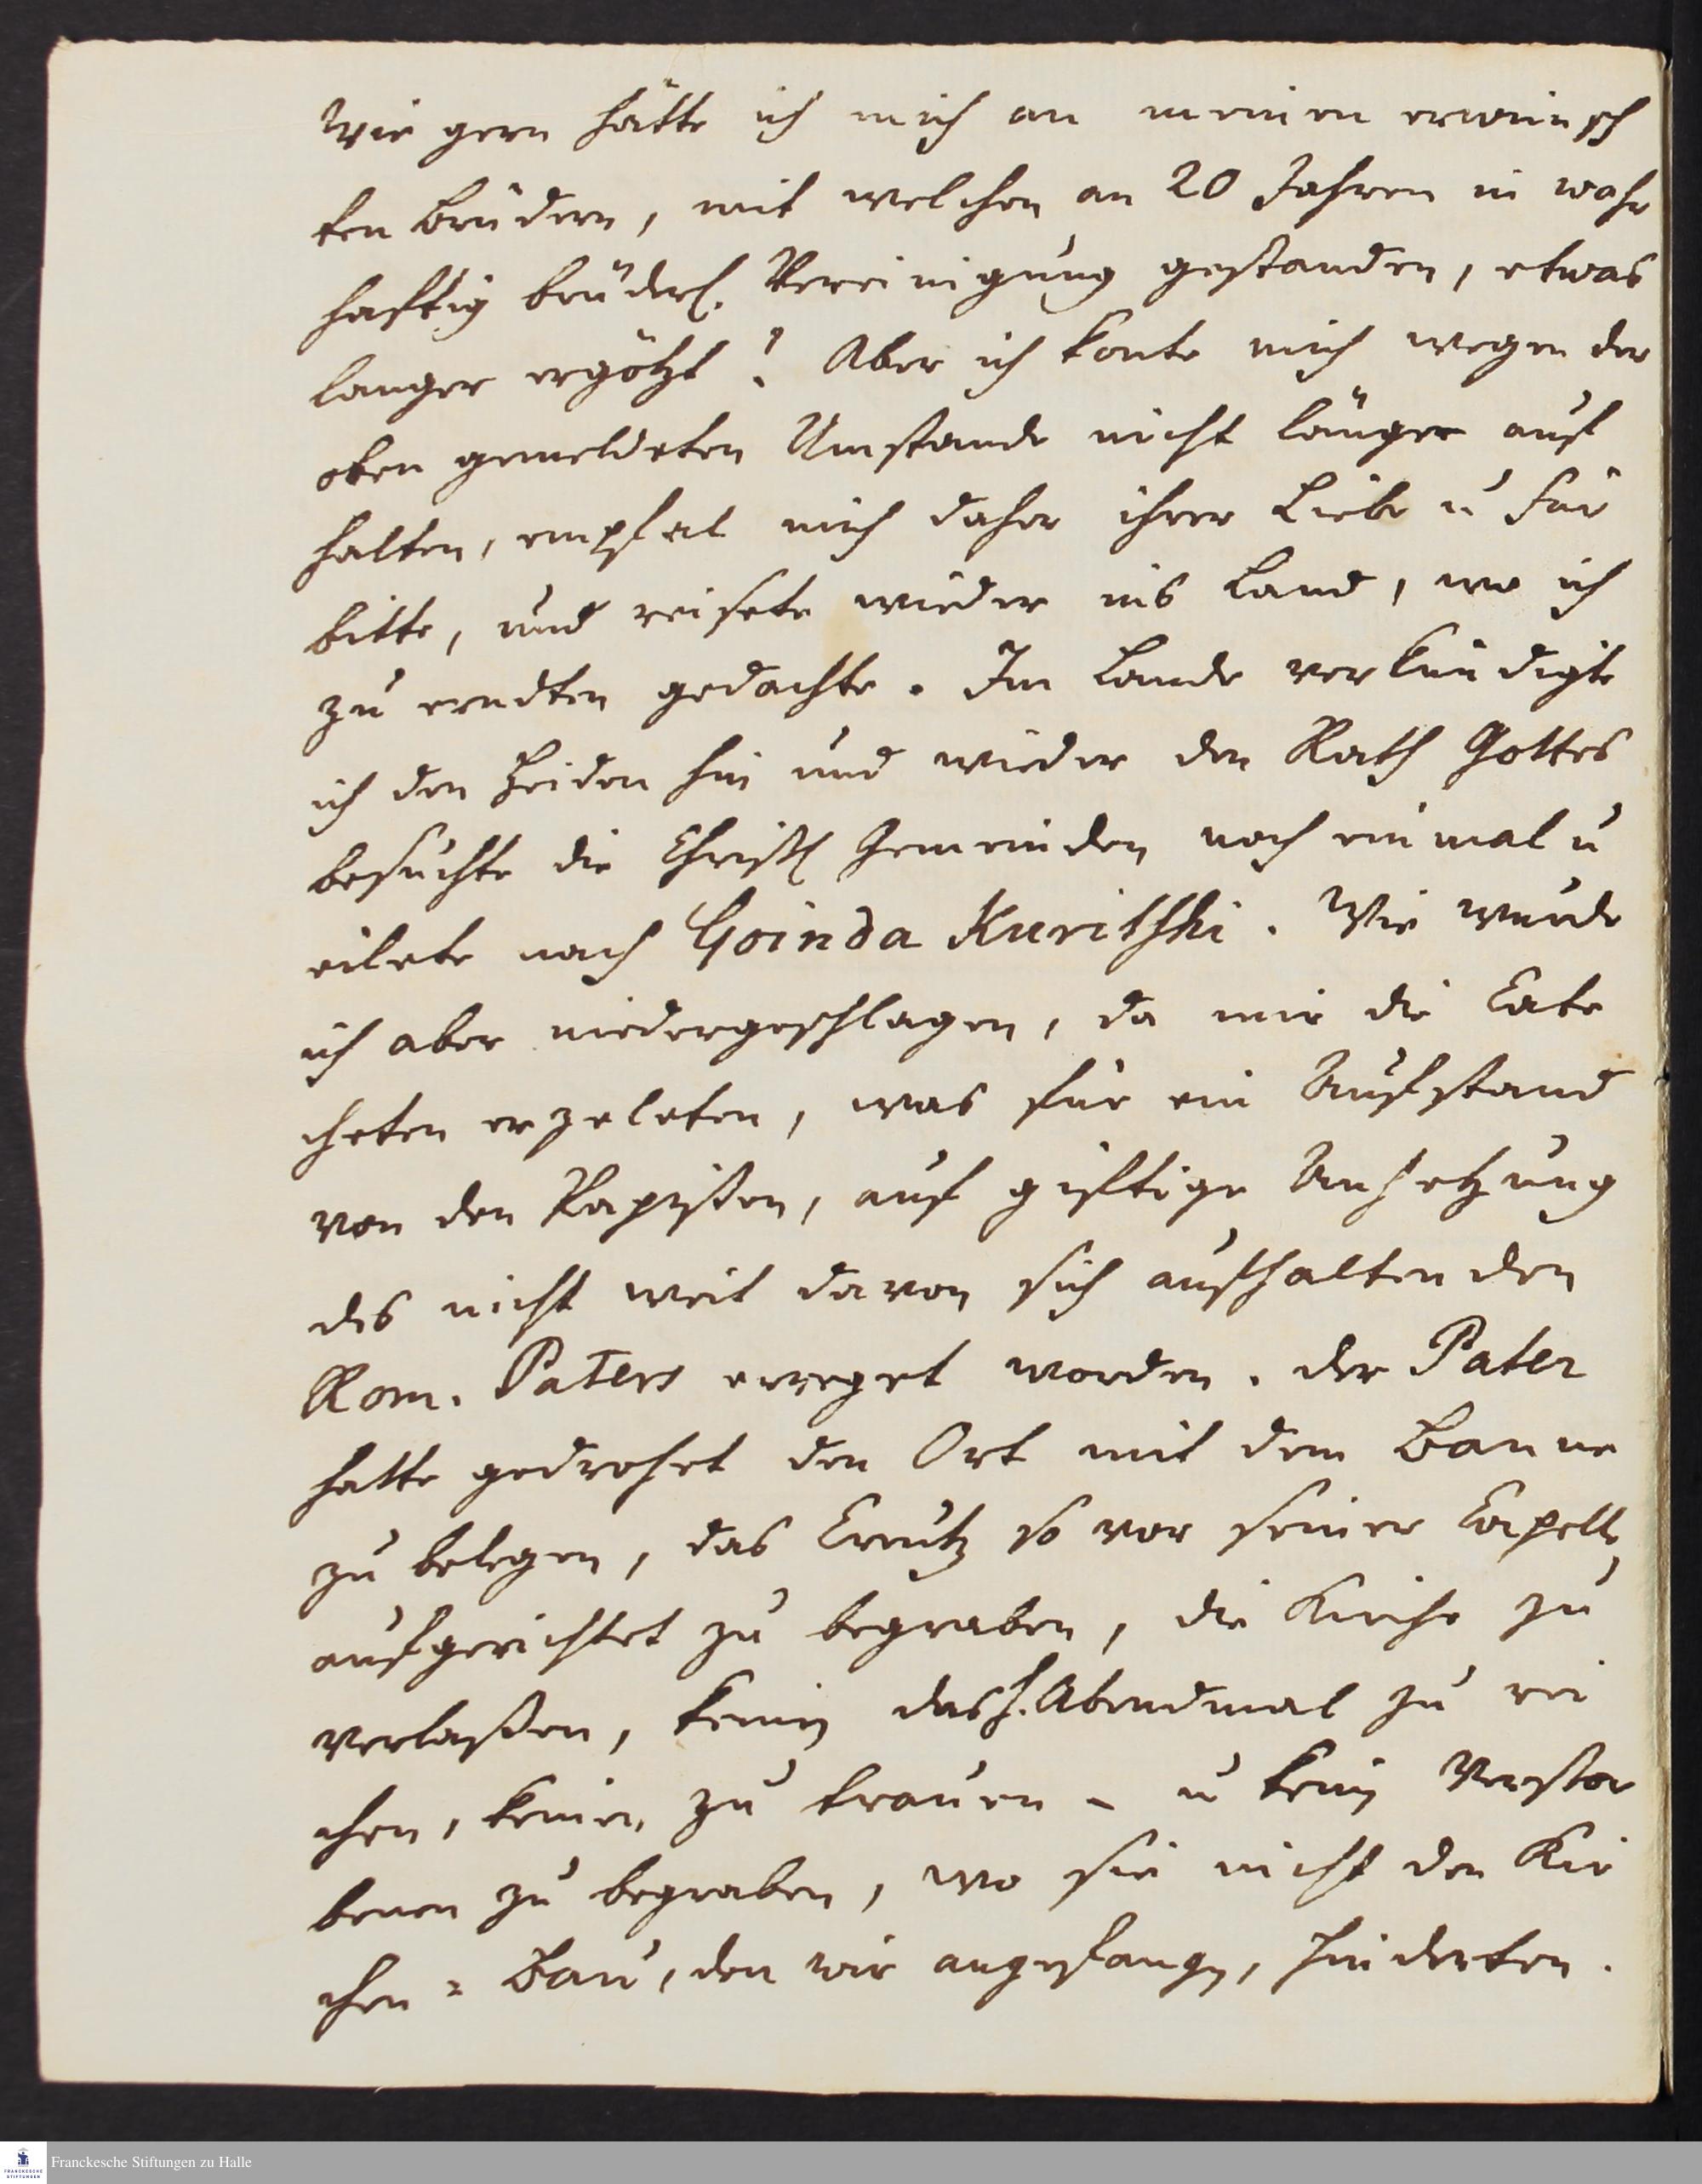 Wie gern hätte ich mich an meinen erwünsch
ten Brüdern, mit welchen an 20 Jahren in wahr
haftig brüderl. Vereinigung gestanden, etwas
langer ergötzt! Aber ich konte mich wegen der
oben gemeldeten Umstande nicht länger auf
halten, empfal mich daher ihrer Liebe u Für
bitte, und reisete wieder ins Land, wo ich
zu erndten gedachte. Im Lande verkündigte
ich den Heiden hin und wieder den Rath Gottes
besuchte die Christl Gemeinden noch einmal u
eilete nach Goinda Kuritshi. Wie wurde
ich aber niedergeschlagen, da mir die Cate
cheten erzeleten, was für ein Aufstand
von den Papisten, auf giftige Anhetzung
des nicht weit davon sich aufhaltenden
Rom. Paters erreget worden. Der Pater
hatte gedrohet den Ort mit dem Banne
zu belegen, das Creutz so vor seiner Capelle
aufgerichtet zu begraben, die Kirche zu
verlaßen, keinen das h. Abendmal zu rei
chen, keinen zu trauen – u keinen Verstor
benen zu begraben, wo sie nicht den Kir
chen = Bau, den wir angefangen, hinderten.
Franckesche Stiftungen zu Halle
FRANCKESCHE
STIFTUNGEN